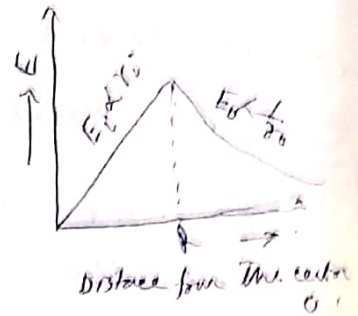 E
E_i ∝ r_i
E_0 ∝ 1/r_0
R
Distance from The center
O